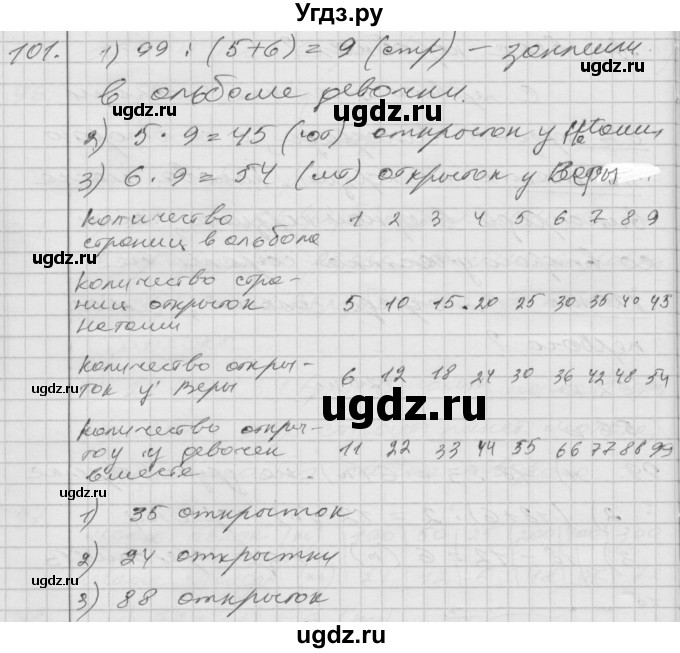 Угдз.ру
101. 1) 99 : (5+6) = 9 (стр) – заняли
в альбоме девочки.
2) 5 · 9 = 45 (шт) открыток у Наташи
3) 6 · 9 = 54 (шт) открыток у Веры
количество
страниц в альбоме 1 2 3 4 5 6 7 8 9
количество стра-
ниц открыток
Наташи 5 10 15 20 25 30 35 40 45
количество откры-
ток у Веры 6 12 18 24 30 36 42 48 54
количество откры-
ток у девочек
вместе 11 22 33 44 55 66 77 88 99
1) 35 открыток
2) 24 открытки
3) 88 открыток
ugdz.ru
ugdz.ru
ugdz.ru
ugdz.ru
ugdz.ru
ugdz.ru
ugdz.ru
ugdz.ru
ugdz.ru
ugdz.ru
ugdz.ru